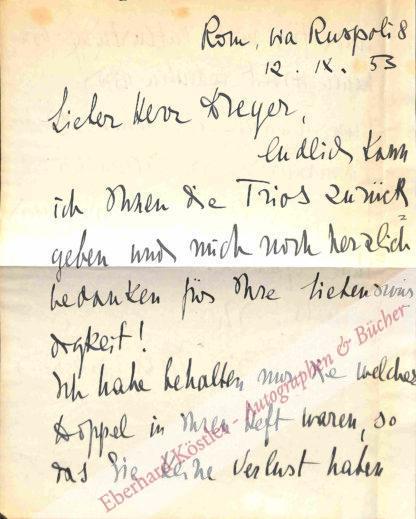 Rom, via Ruspoli 8
12. IX. 53
Lieber Herr Dreyer,
endlich kann
ich Ihnen die Trios zurück
geben und mich noch herzlich
bedanken für Ihre liebenswür
digkeit!
Ich habe behalten nur die welche
Doppel in Ihren Heft waren, so
das Sie keine Verlust haben
Eberhard Köstler - Autographen & Bücher